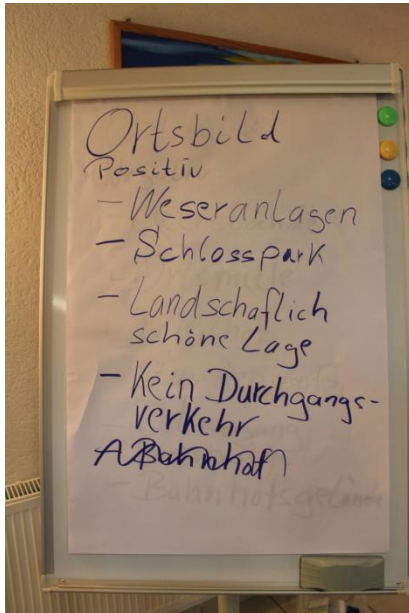 Ortsbild
Positiv
- Weseranlagen
- Schlosspark
- Landschaflich
schöne Lage
- Kein Durchgangs-
verkehr
Bahnhof
- Bahnhofsgelände